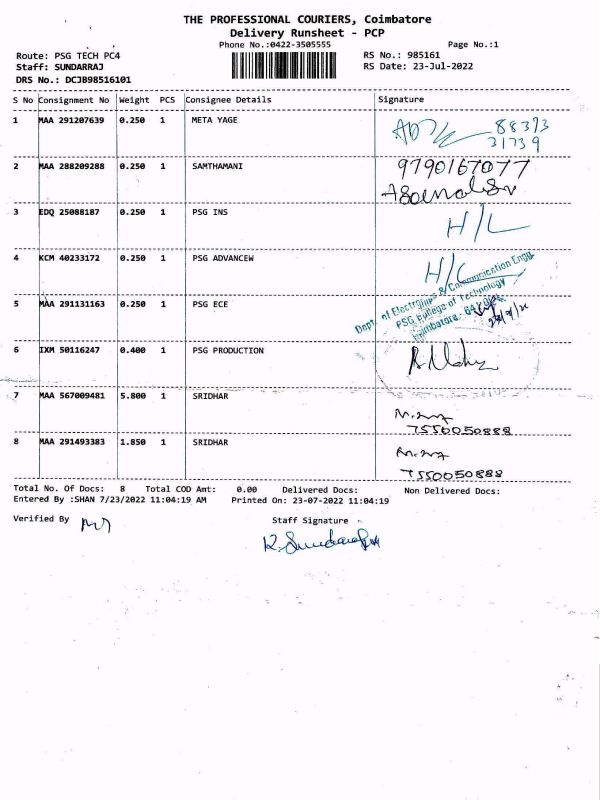 THE PROFESSIONAL COURIERS, Coimbatore
Delivery Runsheet - PCP
Phone No.:0422-3505555 Page No.:1
Route: PSG TECH PC4 RS No.: 985161
Staff: SUNDARRAJ RS Date: 23-Jul-2022
DRS No.: DCJB98516101
S No Consignment No Weight PCS Consignee Details Signature
1 MAA 291207639 0.250 1 META YAGE
88393
31739
2 MAA 288209288 0.250 1 SAMTHAMANI 9790167077
3 EDQ 25088187 0.250 1 PSG INS H/L
4 KCM 40233172 0.250 1 PSG ADVANCEW H/L
Dept. of Electronics & Communication Engg.
PSG College of Technology
Coimbatore - 641004
5 MAA 291131163 0.250 1 PSG ECE
6 IXM 50116247 0.400 1 PSG PRODUCTION
7 MAA 567009481 5.800 1 SRIDHAR
7550050888
8 MAA 291493383 1.850 1 SRIDHAR
7550050888
Total No. Of Docs: 8 Total COD Amt: 0.00 Delivered Docs: Non Delivered Docs:
Entered By :SHAN 7/23/2022 11:04:19 AM Printed On: 23-07-2022 11:04:19
Verified By Staff Signature
R. Sundararaj